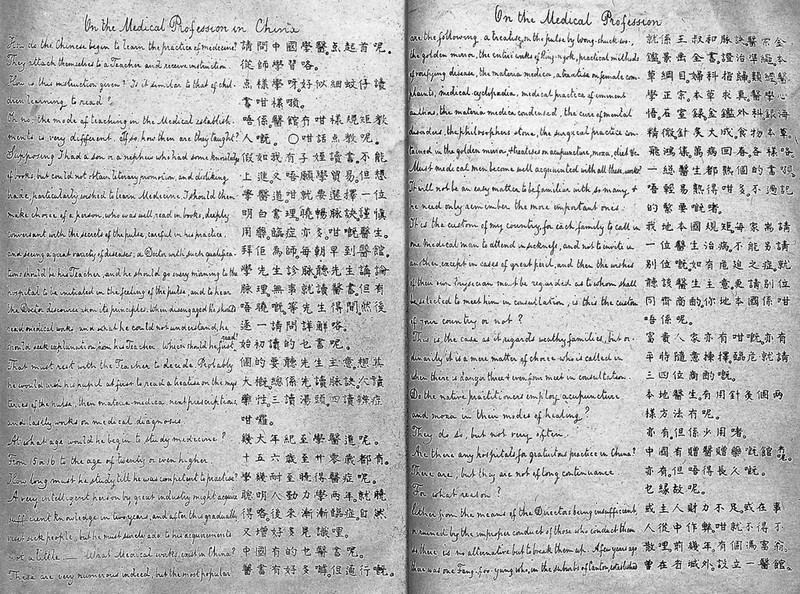 On the Medical Profession in China
How do the Chinese begin to learn the practice of medicine?
They attach themselves to a Teacher and receive instruction.
How is this instruction given? Is it similar to that of chil-
dren learning to read?
Oh no, the mode of teaching in the Medical establish-
ments is very different. If so, how then are they taught?
Supposing I had a son or a nephew who had some knowledge
of books, but could not obtain literary promotion, and disliking
trade, particularly wished to learn Medicine. I should then
make choice of a person, who was well read in books, deeply
conversant with the secrets of the pulse, careful in his practice,
and seeing a great variety of diseases; a Doctor with such qualifica-
tions should be his Teacher, and he should go every morning to the
hospital to be initiated in the feeling of the pulses, and to hear
the Doctor discourse upon its principles; when disengaged he should
read medical works and what he could not understand, he
should seek explanation from his Teacher. Which should he first read?
That must rest with the Teacher to decide. Probably
he would order his pupil at first to read a treatise on the mys-
teries of the pulse, then materia medica, next prescriptions,
and lastly works on medical diagnosis.
At what age would he begin to study medicine?
From 15 or 16 to the age of twenty or even higher.
How long must he study till he was competent to practise?
A very intelligent person by great industry might acquire
sufficient knowledge in two years, and after this gradually
meet sick people, but he must still add to his acquirements
not a little. What Medical works exist in China?
These are very numerous indeed, but the most popular
請問中國學醫点起首呢。
從師學習略。
点樣學呀好似細蚊仔讀
書咁樣嘅。
唔係醫館有咁樣規矩教
人嘅。〇咁話点教呢。
假如我有子姪讀書不能
上進又唔願學貿易但想
學醫道咁就要選擇一位
明白書理曉暢脉訣謹慎
用藥臨症亦多咁嘅醫生
拜佢為師每朝早到醫館
學先生診脉聽先生講論
脉理無事就讀醫書但有
唔曉嘅等先生得閒然後
逐一請問詳解略。
始初讀的乜書呢。
個的要聽先生主意想其
大概總係先讀脉訣次讀
藥性三讀湯頭四讀辨症
咁囉。
幾大年紀至學醫道呢。
十五六歲至廿零歲都有。
學幾耐至曉得醫症呢。
聰明人勤力學兩年就曉
得略後來漸漸臨症自然
又增好多見識哩。
中國有的乜醫書呢。
醫書有好多嚹但通行嘅。
On the Medical Profession
are the following, a treatise on the pulse by Wong-shuck-wo,
the golden mirror, the entire works of King-ngok, practical methods
of verifying disease, the materia medica, a treatise on female com-
plaints, medical cyclopædia, medical practice of eminent
authors, the materia medica condensed, the cure of mental
disorders, the philosophers stone, the surgical practice con-
tained in the golden mirror, & treatises on acupuncture, moxa, diet &c
Must medical men be well acquainted with all these works?
It will not be an easy matter to be familiar with so many, &
he need only remember the more important ones.
It is the custom of my country, for each family to call in
one medical man to attend in sickness, and not to invite in
another except in cases of great peril, and then the wishes
of their own Physician must be regarded as to whom shall
be selected to meet him in consultation, is this the custom
of your country or not?
This is the case as it regards wealthy families, but or-
dinarily it is a mere matter of choice who is called in
when there is danger three or even four meet in consultation.
Do the native practitioners employ acupuncture
and moxa in their modes of healing?
They do so, but not very often.
Are there any hospitals for gratuitous practice in China?
There are, but they are not of long continuance
For what reason?
Either from the means of the Directors being insufficient,
or ruined by the improper conduct of those who conduct them
so there is no alternative but to break them up. A few years ago
there was one Fung-foo-yung who, in the suburbs of Canton, established
就係王叔和脉訣醫宗金
鑑景岳全書證治準繩本
草綱目婦科指歸類經醫
學正宗本草求真醫學心
悟石室錄金鑑外科錦海
精微針灸大成食物本草
飛鴻集萬病回春各樣略
一総醫生都熟個的書嗎。
唔輕易熟得咁多不過記
的緊要嘅啫。
我地本國規矩每家寓請
一位醫生治病不能另請
別位嘅如有危廹之症就
聽該醫生主意更請別位
同齊商酌你地本國係咁
唔係呢。
富貴人家亦有咁嘅亦有
平特隨意揀擇臨危就請
三四位商酌嘅。
本地醫生有用針灸個两
樣方法有呢。
亦有但係少用啫。
中國有贈醫贈藥嘅館冇呢。
亦有但唔得長久嘅。
乜緣故呢。
或主人財力不足或在事
人從中作弊咁就不得不
散哩前幾年有個馮富翁
曾在冇城外設立一醫館。